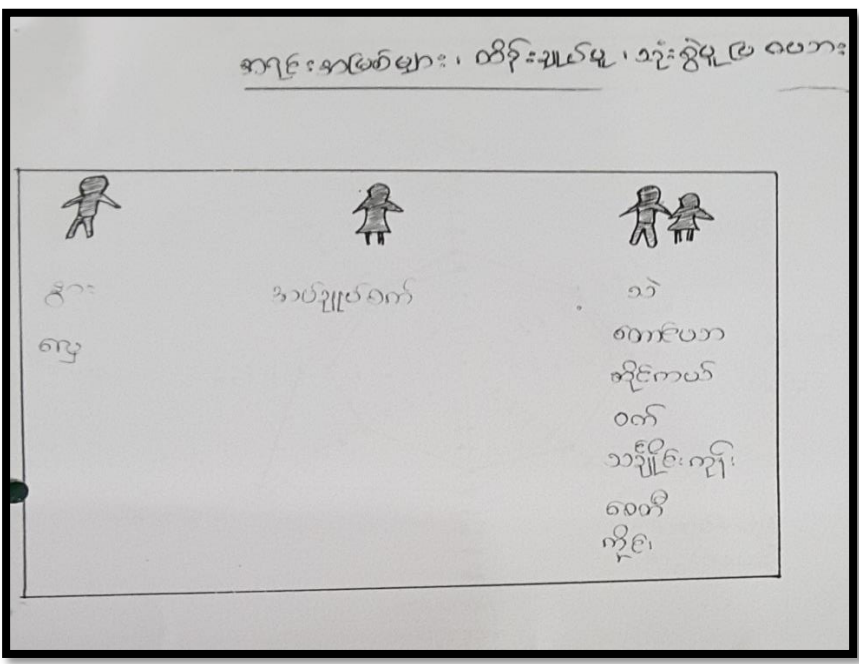 အရင်းအမြစ်များ၊ ထိန်းချုပ်မှု၊ သုံးစွဲမှု ပြ ဇယား
နွား
လှေ
အပ်ချုပ်စက်
သဲ
တောင်ယာ
ဆိုင်ကယ်
ဝက်
သင်္ချိုင်းကုန်း
စေတီ
ကိုင်း